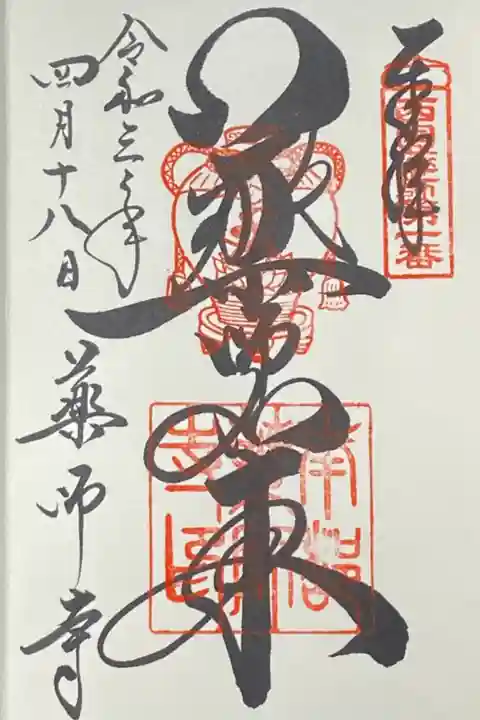 奉拝
西国薬師第一番
薬師如来
令和三年
四月十八日 薬師寺